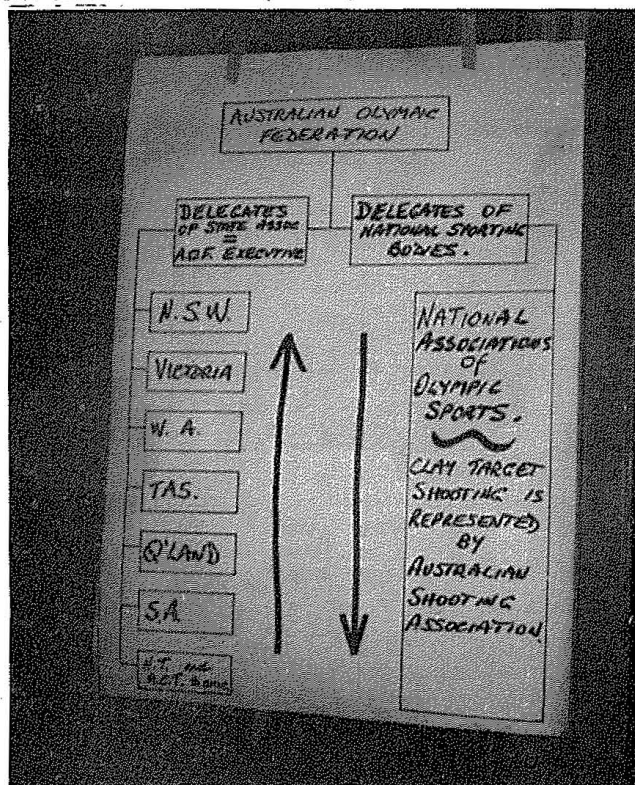 AUSTRALIAN OLYMPIC
FEDERATION
DELEGATES
OF STATE ASSOC
=
A.O.F. EXECUTIVE
DELEGATES OF
NATIONAL SPORTING
BODIES.
N.S.W.
VICTORIA
W. A.
TAS.
Q'LAND
S.A.
N.T. and
A.C.T.
NATIONAL
ASSOCIATIONS
OF
OLYMPIC
SPORTS.
CLAY TARGET
SHOOTING IS
REPRESENTED
BY
AUSTRALIAN
SHOOTING
ASSOCIATION